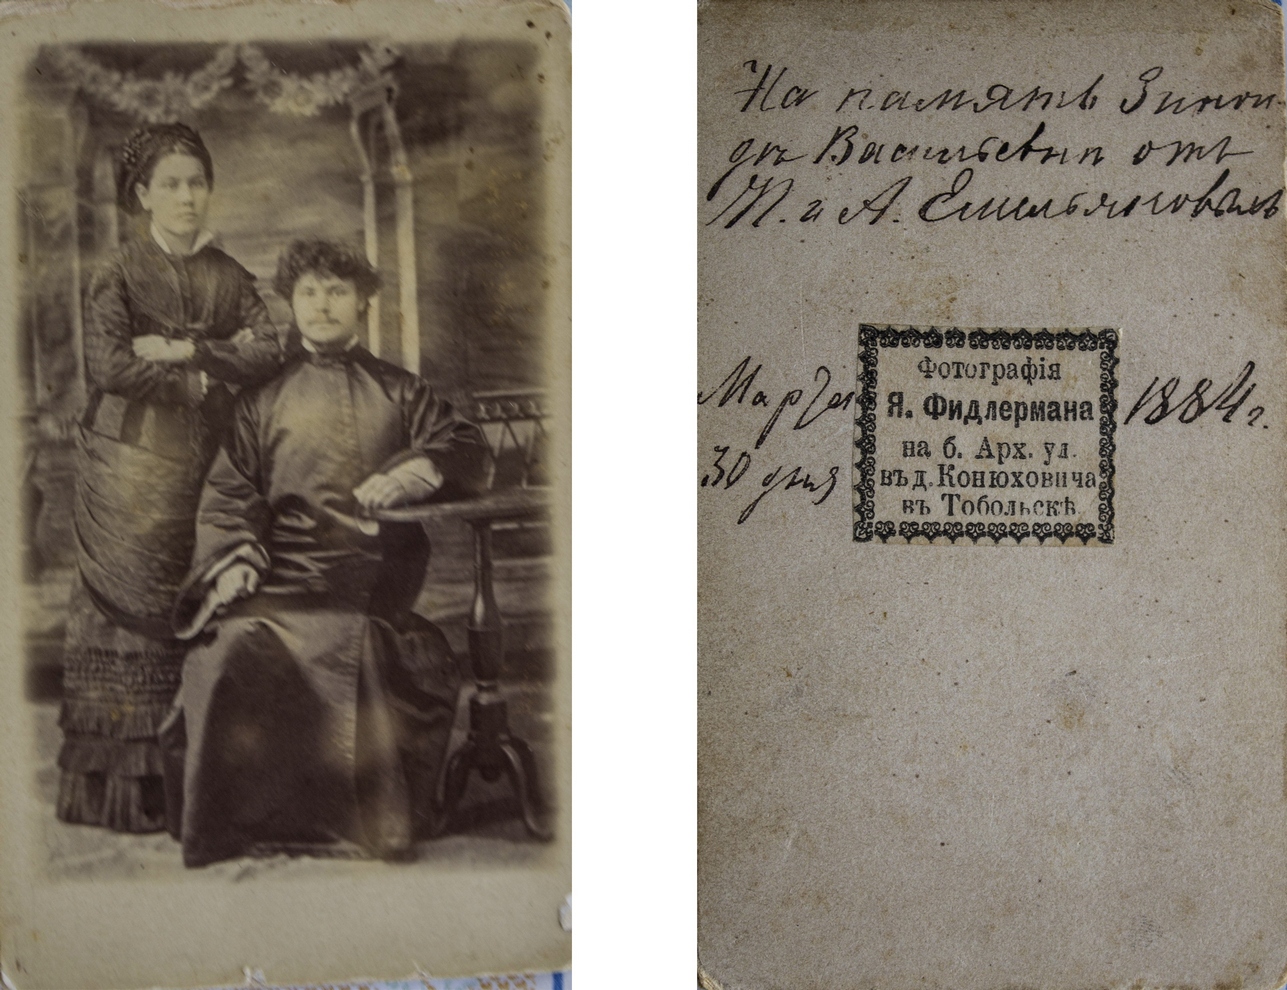 На память Зинои-
дѣ Васильевнѣ отъ
П. и А. Емельяновыхъ
Марта
30 дня
1884 г.
Фотографія
Я. Фидлермана
на б. Арх. ул.
въ д. Конюховича
въ Тобольскѣ.